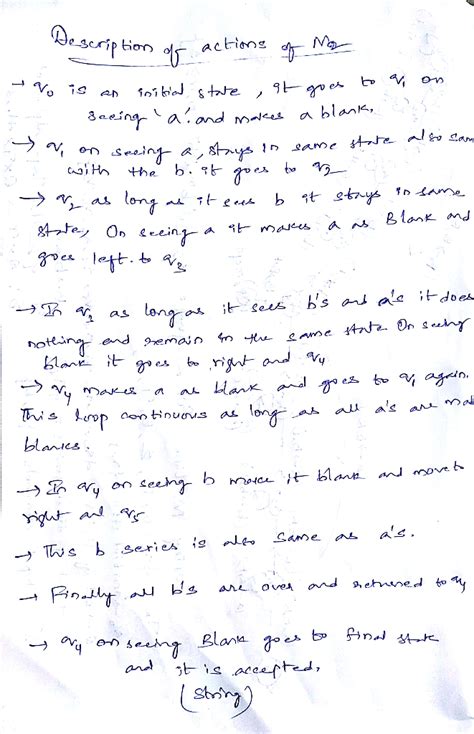 Description of actions of M2
→ q0 is an initial state, It goes to q1 on
seeing 'a' and makes a blank.
→ q1 on seeing a, stays in same state also sam
with the b. it goes to q2
→ q2 as long as it sees b it stays in same
state, On seeing a it makes a as Blank and
goes left. to q3
→ In q3 as long as it sees b's and a's it does
nothing and remain in the same state On seeing
blank it goes to right and q4
→ q4 makes a as blank and goes to q1 again.
This loop continuous as long as all a's are mad
blanks.
→ In q4 on seeing b make it blank and move to
right and q5
→ This b series is also same as a's.
→ Finally all b's are over and returned to q4
→ q4 on seeing Blank goes to final state
and it is accepted.
(String)